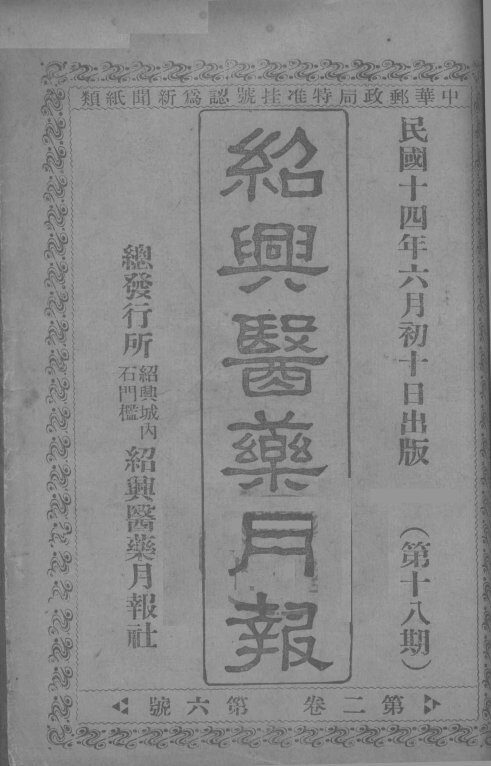 中華郵政局特准挂號認爲新聞紙類
民國十四年六月初十日出版
（第十八期）
紹興醫藥月報
總發行所
紹興城內
石門檻
紹興醫藥月報社
第二卷 第六號